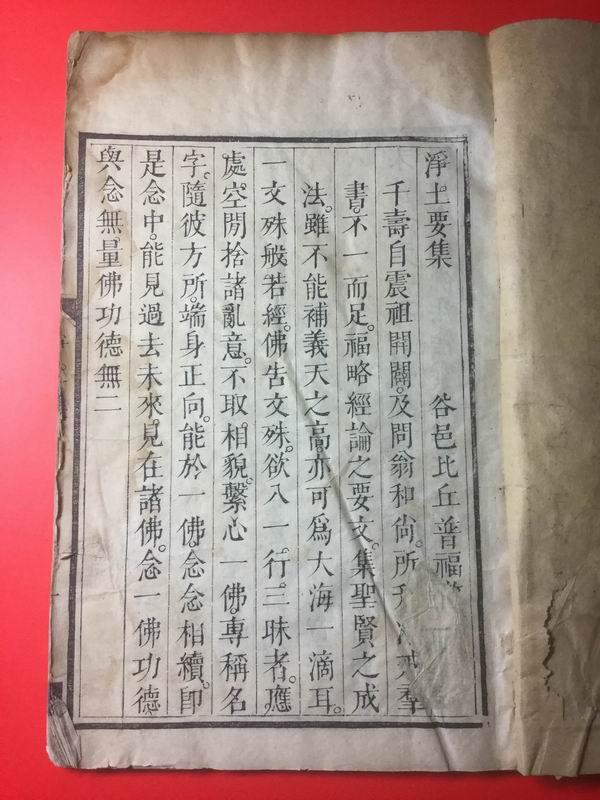 淨土要集　　谷邑比丘普福
千壽自震祖開闢。及問翁和尙。所
書。不一而足。福略經論之要文。集聖賢之成
法。雖不能補義天之高。亦可爲大海一滴耳。
一文殊般若經。佛告文殊。欲入一行。三昧者。應
處。空閒捨諸亂意。不取。相貌。繫心一佛。專稱名
字。隨彼方所。端身正向。能於一佛。念念相續。卽
是念中。能見過去未來。見在諸佛。念一佛功德
與念無。量佛功德無二